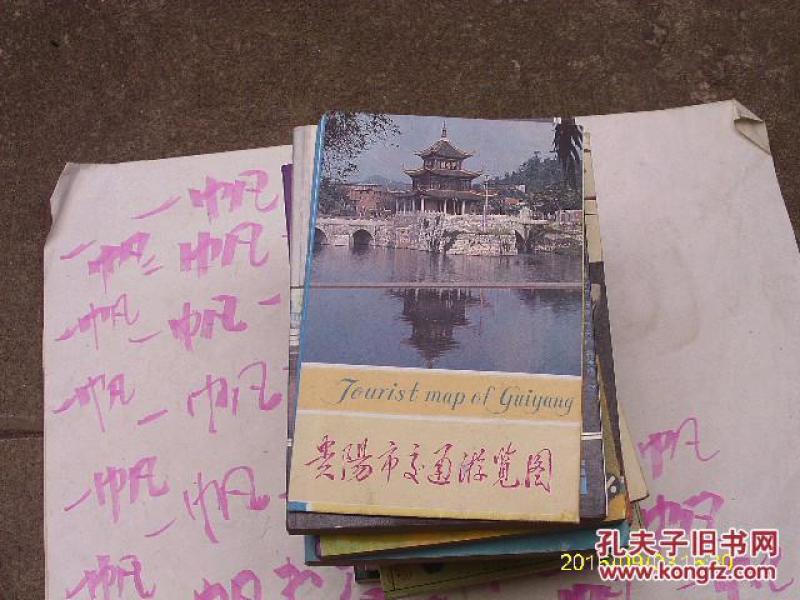 一帆
一帆 一帆 一
一帆 一帆 一
一帆 一帆
一帆 一帆
一帆书
帆
帆
Tourist map of Guiyang
贵陽市交通游览图
孔夫子旧书网
www.kongfz.com